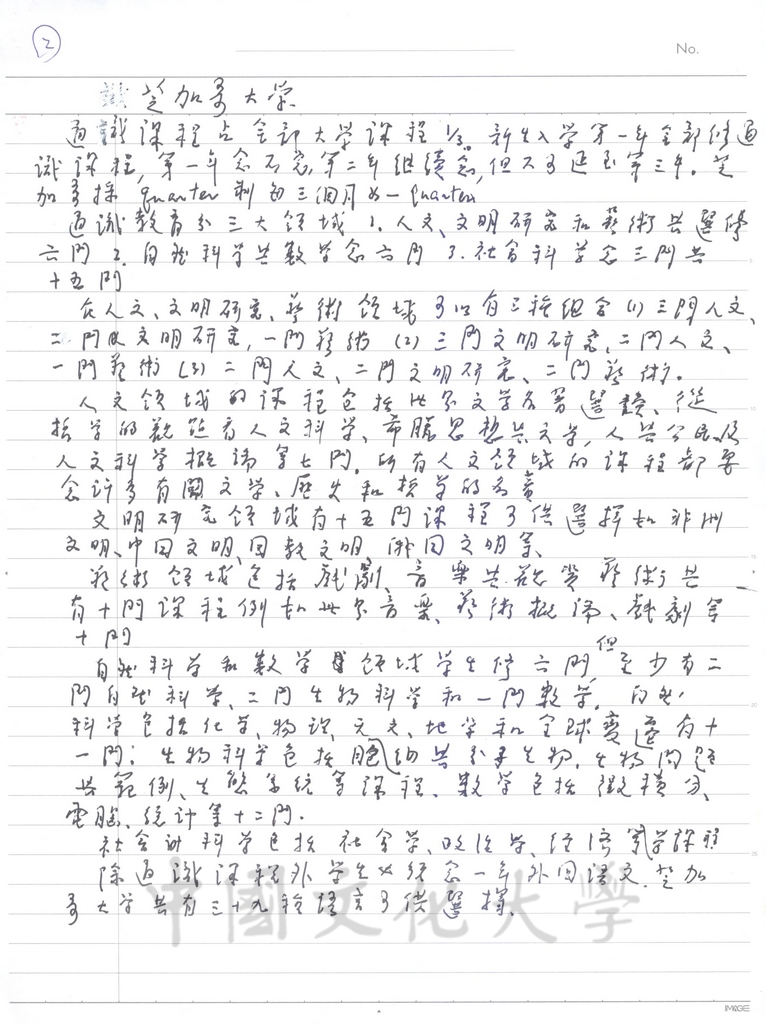 2
No.
芝加哥大学
通識課程占全部大学課程1/3。新生入学第一年全部修通
識課程,第一年念不完,第二年継續念,但不可延至第三年。芝
加哥採quarter制每三個月為一quarter
通識教育分三大領域1.人文、文明研究和藝術共選修
六門2.自然科学共数学念六門3.社会科学念三門共
十五門
在人文、文明研究、藝術領域可以有三種組合(1)三門人文、
二門文明研究,一門藝術(2)三門文明研究、二門人文、
一門藝術(3)二門人文、二門文明研究、二門藝術。
人文領域的課程包括世界文学名著選讀、從
哲学的觀點看人文科学、希臘思想共文学,人共公民及
人文科学概論等七門。所有人文領域的課程都要
念許多有関文学、歷史和哲学的名著
文明研究領域有十五門課程可供選擇如非洲
文明、中国文明、回教文明、俄国文明等、
藝術領域包括戲劇、音樂共欣賞藝術共
有十門課程例如世界音樂、藝術概論、戲劇等
十門
自然科学和数学領域学生修六門,但至少有二
門自然科学、二門生物科学和一門数学。自然
科学包括化学、物理、天文、地学和全球變遷有十
一門;生物科学包括細胞共分子生物,生物問題
共範例、生態系統等課程。数学包括微積分、
電腦、統計等十二門。
社会科学包括社会学、政治学、経済学等課程
除通識課程外学生必須念一年外国語文。芝加
哥大学共有三十九種語言可供選擇、
中國文化大學
IMAGE